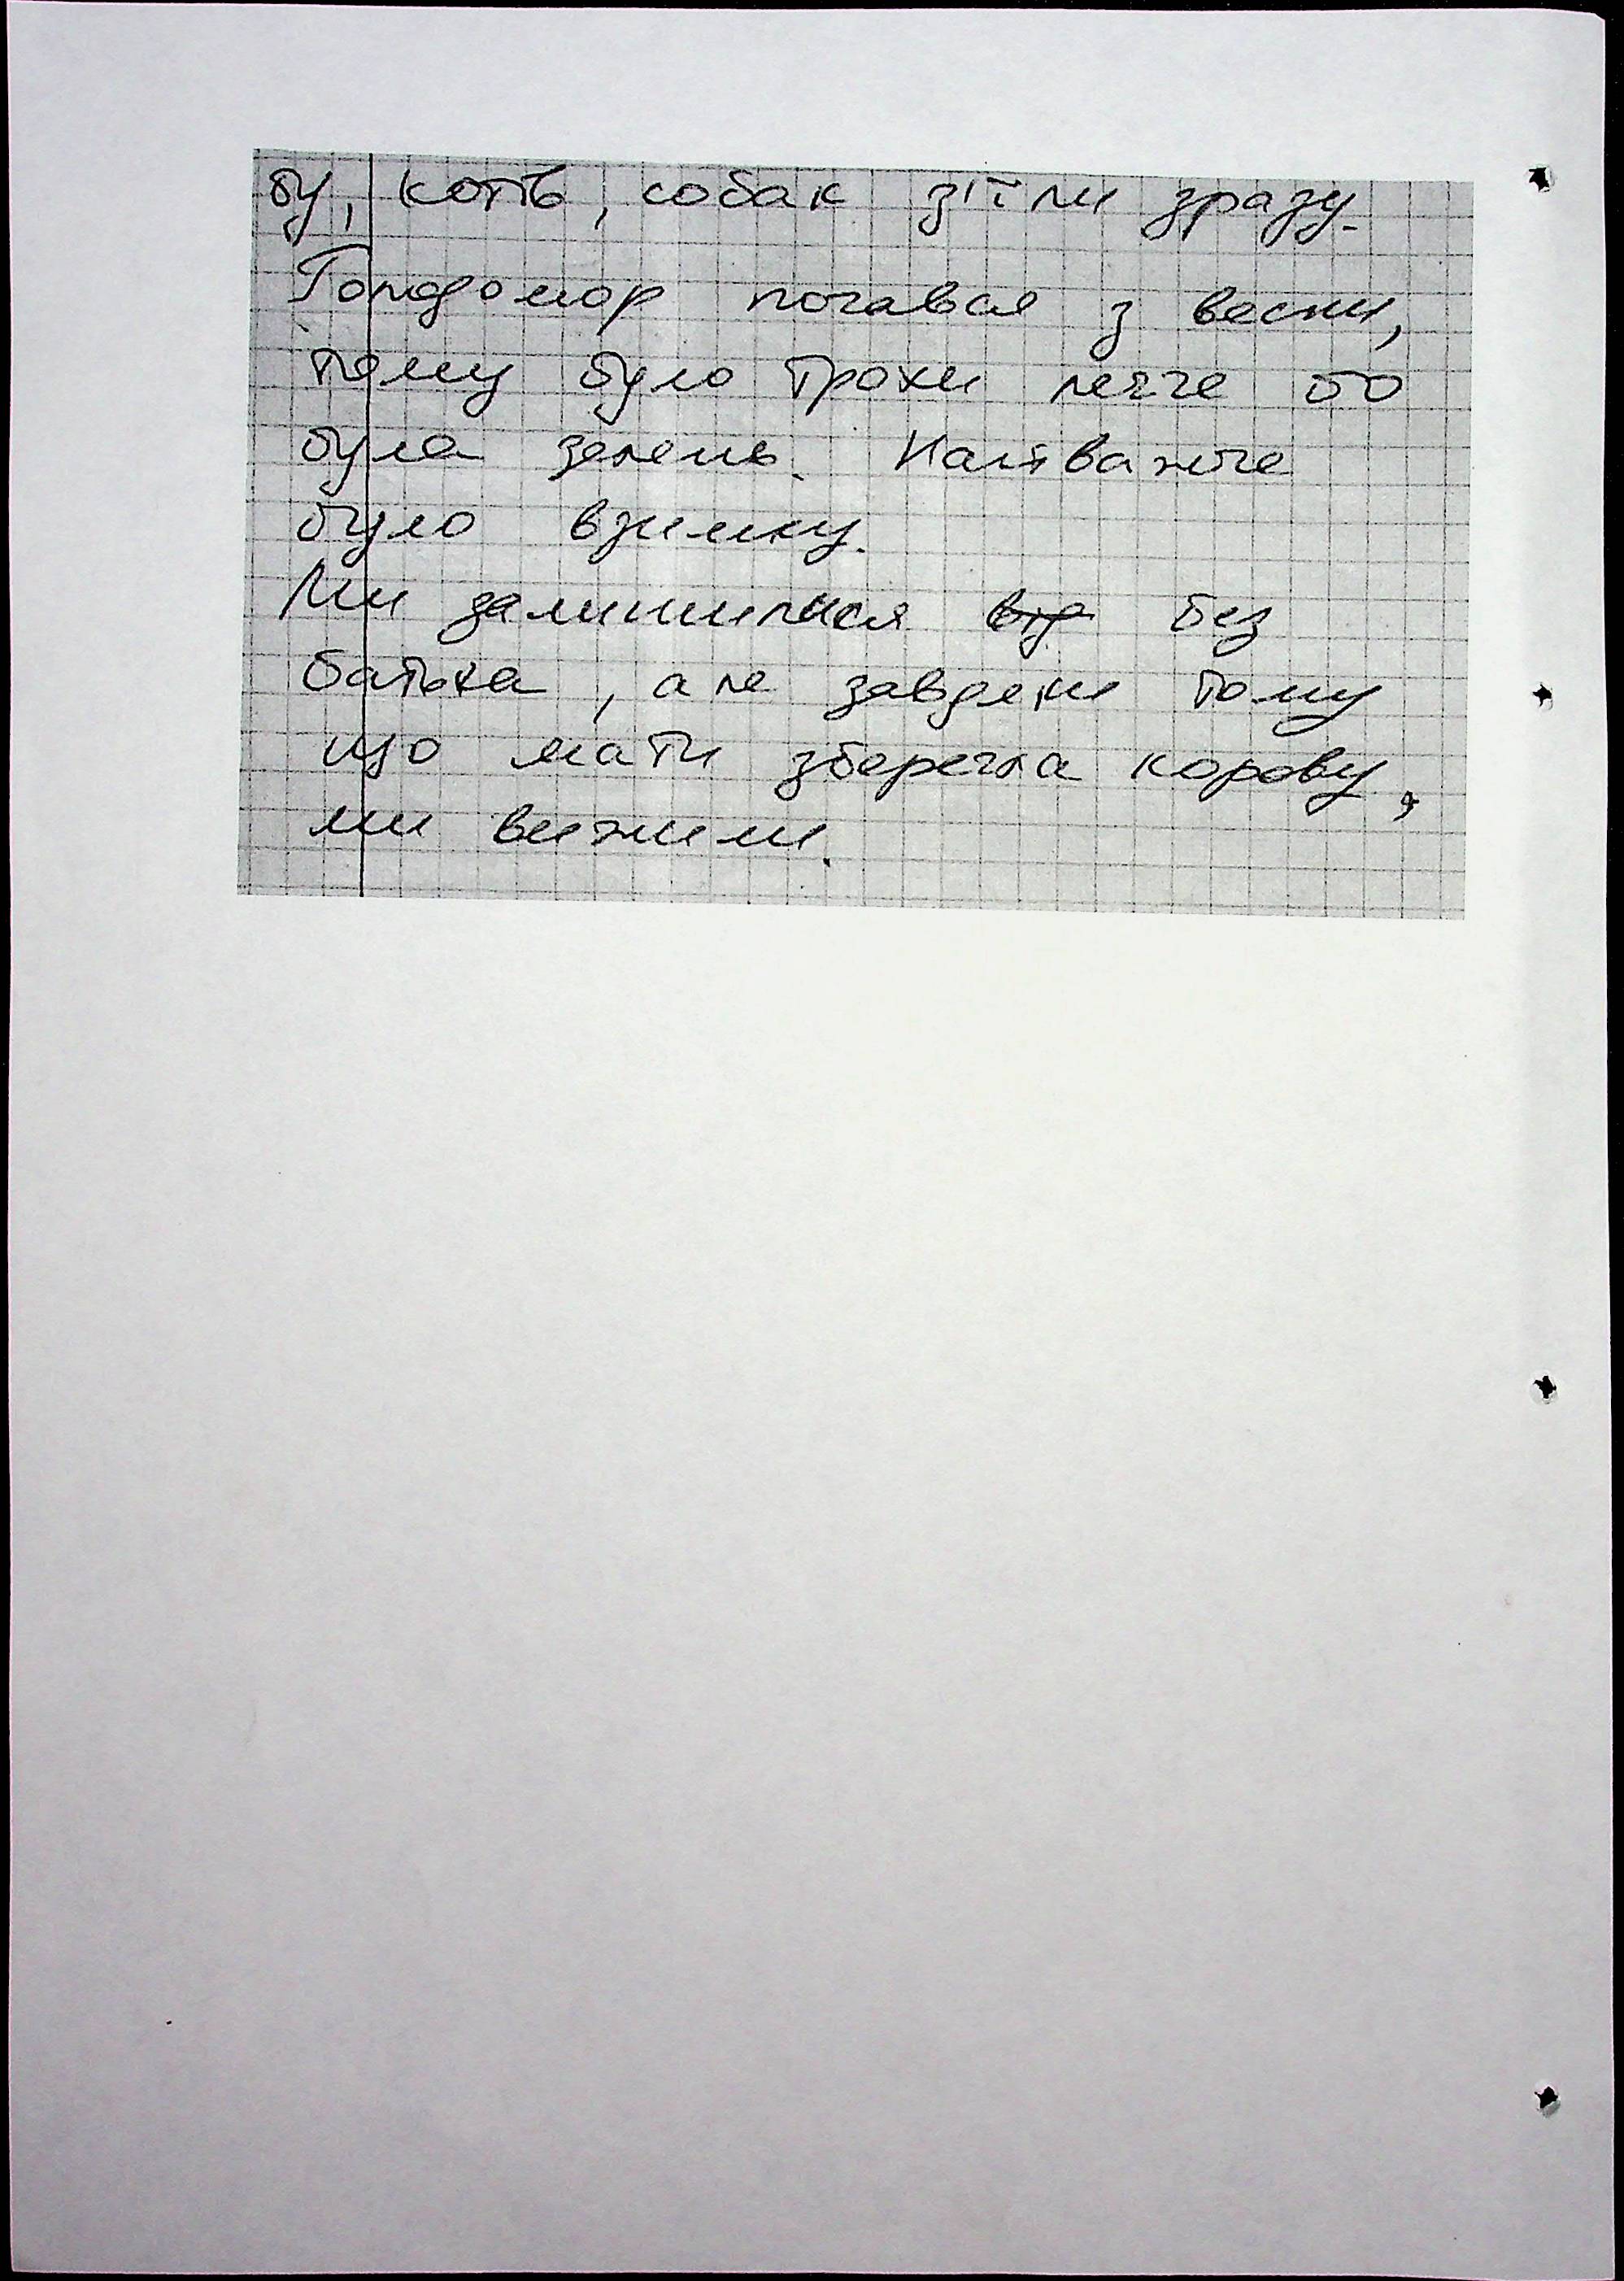 бу, котів, собак з'їли зразу.
Голодомор почався з весни,
тому було трохи легче бо
була зелень. Найважче
було взимку.
Ми залишилися від без
батька, але завдяки тому
що мати зберегла корову,
ми вижили.